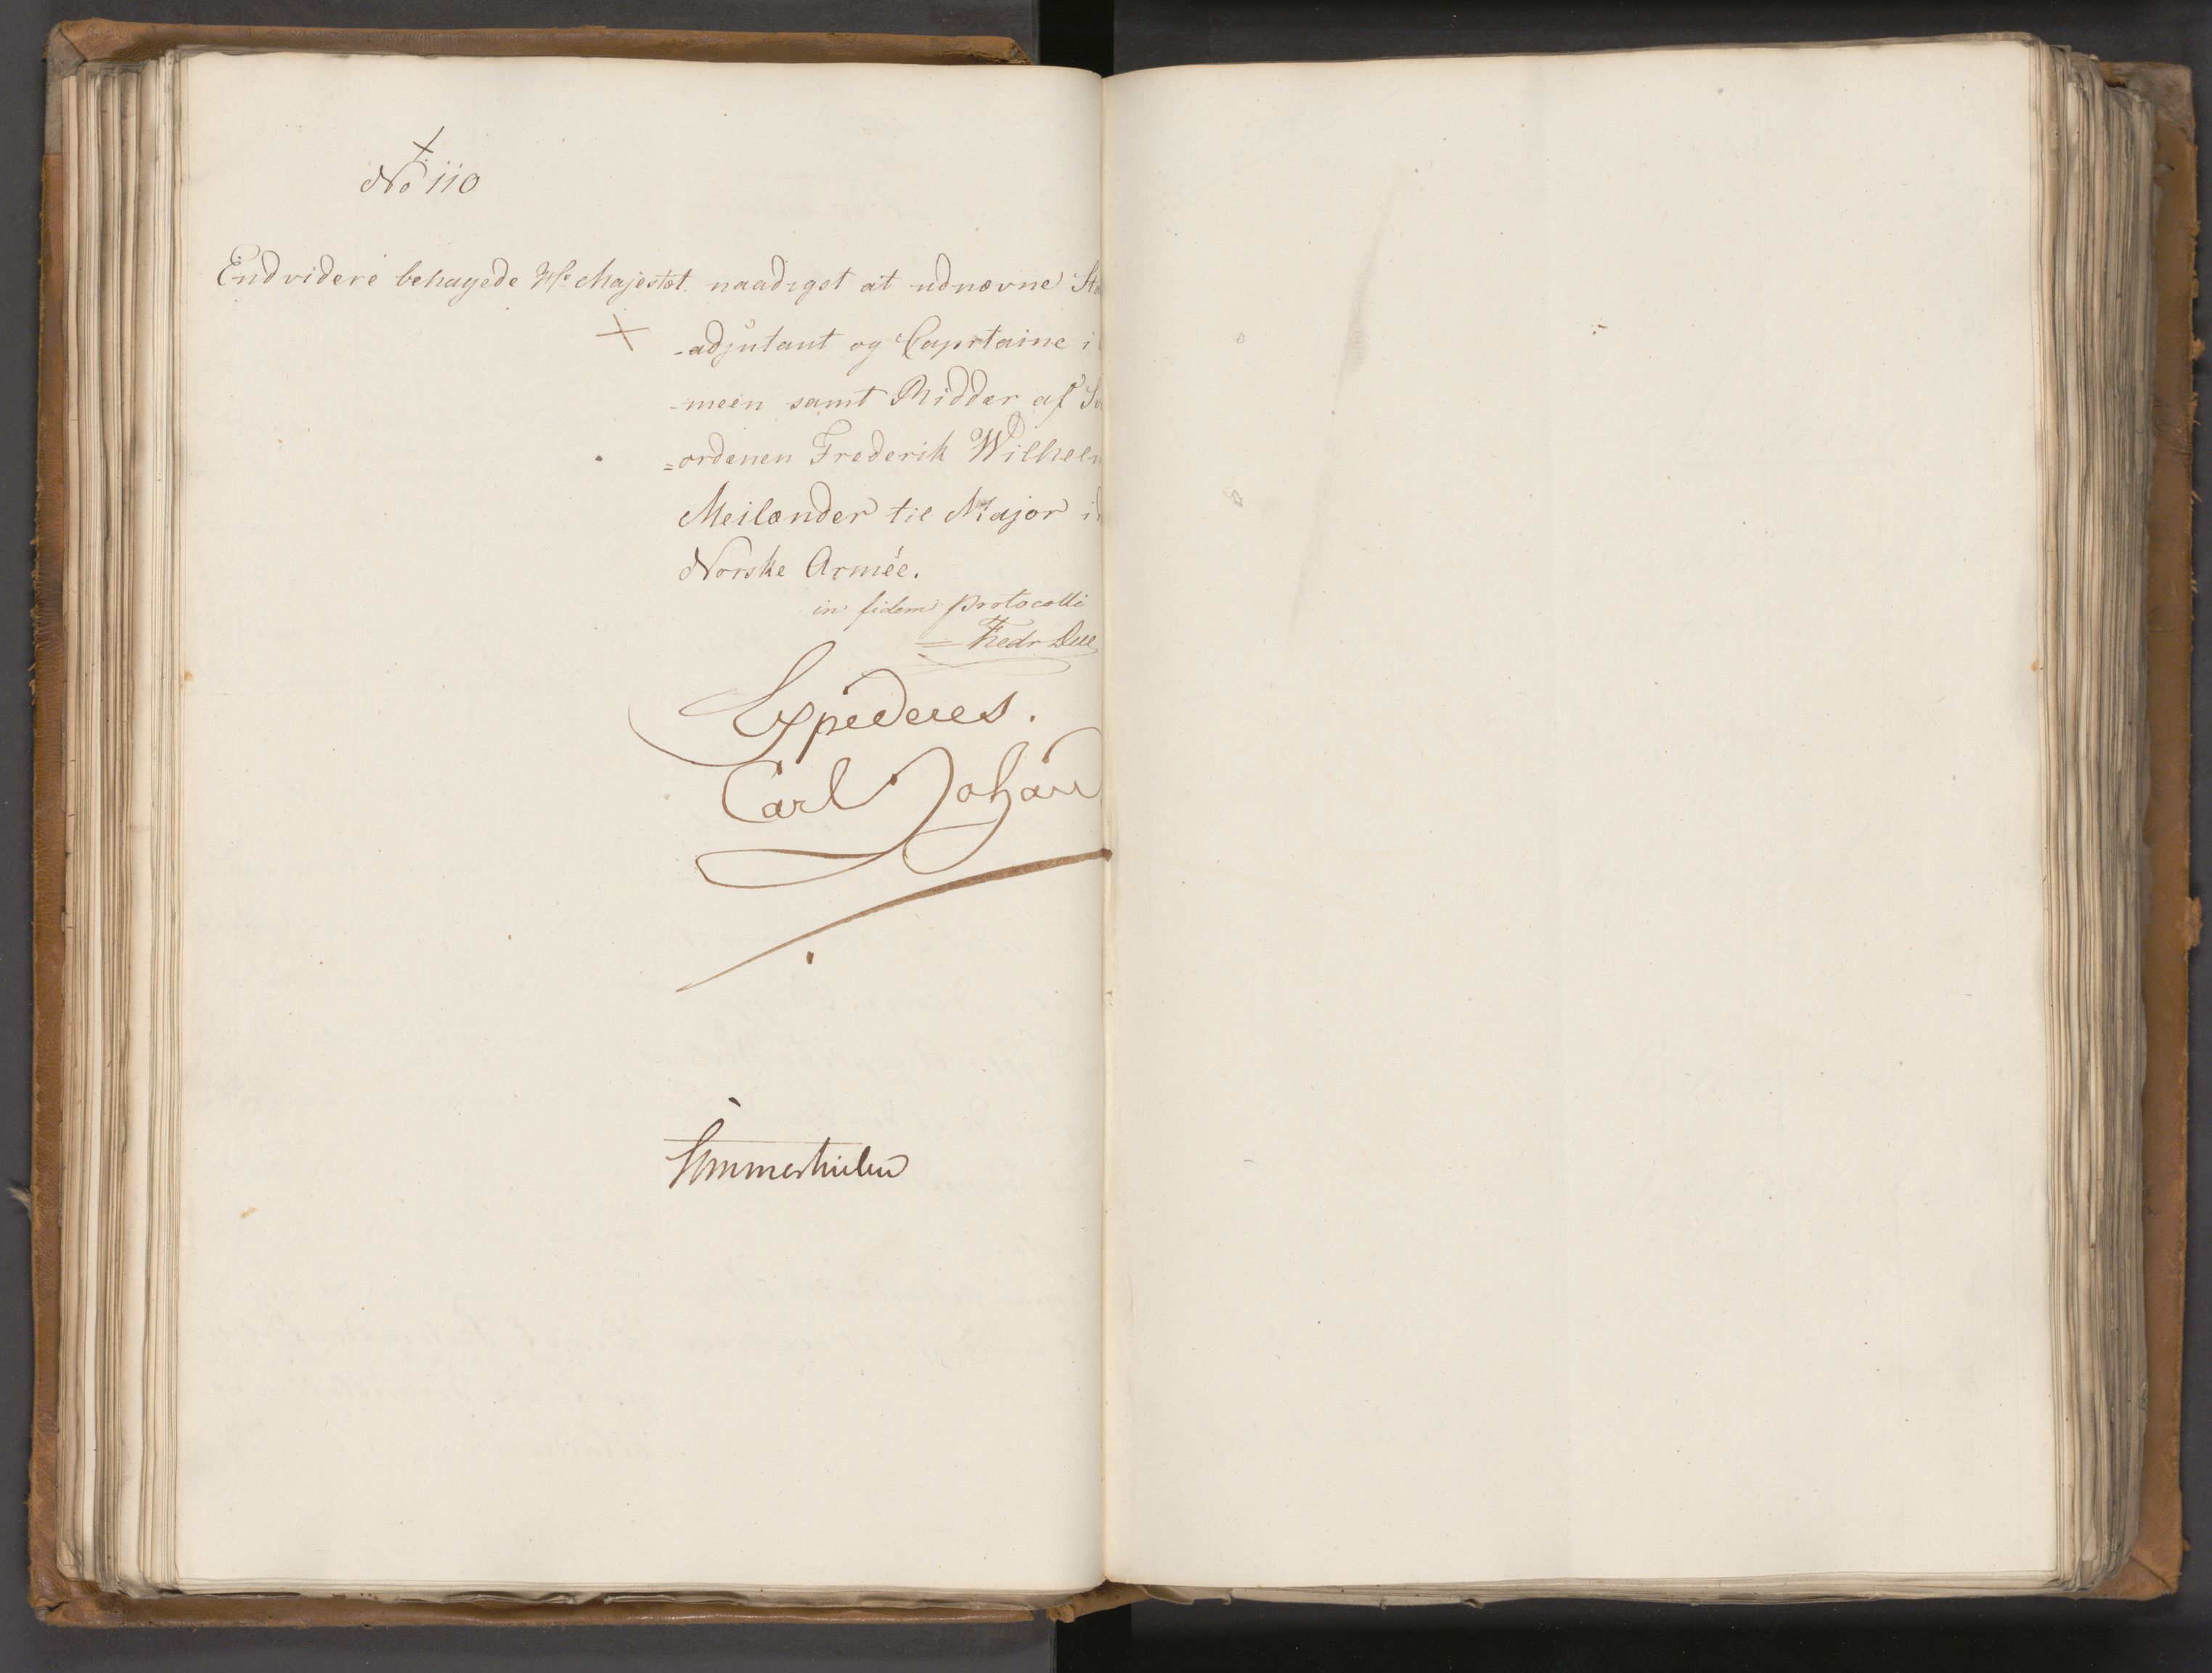 No 110
Endvidere behagede Hs Majestæt naadigst at udnævne
-adjutant og Capitaine i
-meen samt Ridder af
=ordenen Frederik Wilhelm
Meilænder til Major i
Norske Armée.
in fidem protocolli
Fredr Due
Expederes.
Carl Johan
Sommerhielm